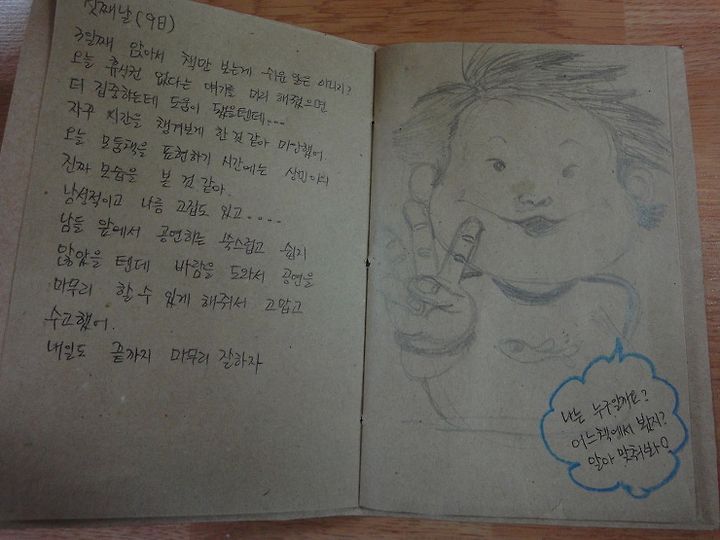 첫째날(9日)
3일째 앉아서 책만 보는게 쉬운 일은 아니지?
오늘 휴식권 없다는 얘기를 미리 해줬으면
더 집중하는데 도움이 됐을텐데....
자꾸 시간을 챙겨보게 한 것 같아 미안했어
오늘 모둠책을 표현하기 시간에는 상민이의
진짜 모습을 본 것 같아.
남성적이고 나름 고집도 있고....
남들 앞에서 공연하는 쑥스럽고 쉽지
않았을 텐데 바람을 도와서 공연을
마무리 할 수 있게 해줘서 고맙고
수고했어.
내일도 끝까지 마무리 잘하자
나는 누구일까요?
어느책에서 봤지?
알아 맞춰봐